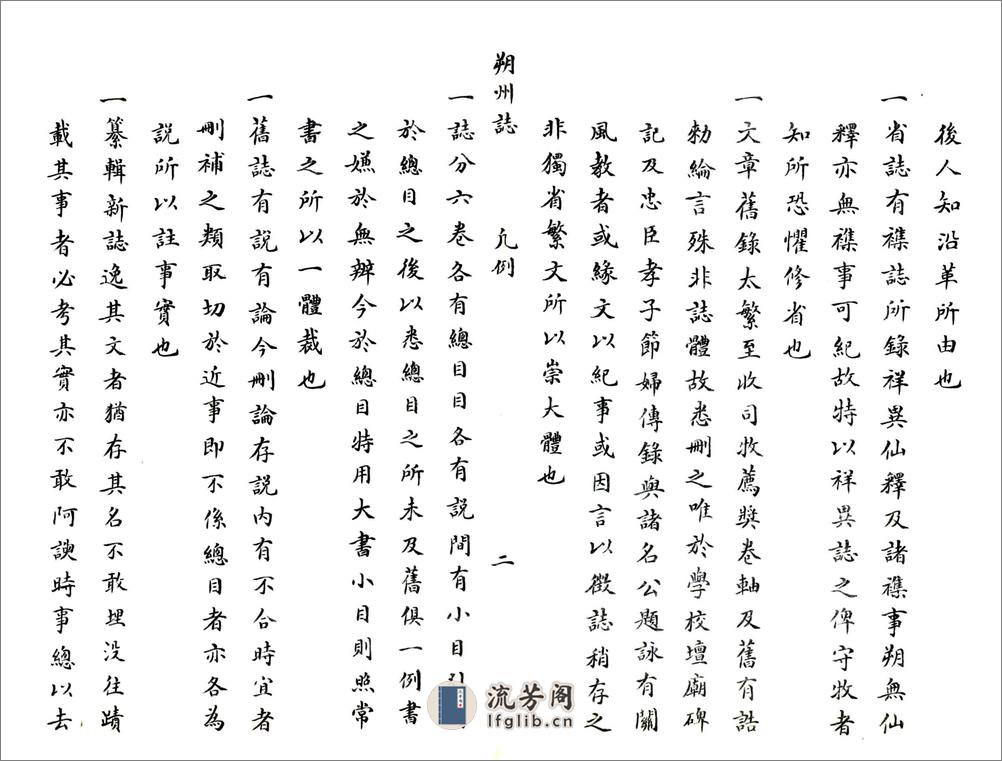 後人知沿革所由也
一省誌有襍誌所錄祥異仙釋及諸襍事朔無仙
釋亦無襍事可紀故特以祥異誌之俾守牧者
知所恐懼修省也
一文章舊錄太繁至收司牧薦獎卷軸及舊有誥
勅綸言殊非誌體故悉刪之唯於學校壇廟碑
記及忠臣孝子節婦傳錄與諸名公題詠有關
風教者或緣文以紀事或因言以徵誌稍存之
非獨省繁文所以崇大體也
朔州誌 凡例 二
一誌分六卷各有總目目各有説間有小目
於總目之後以悉總目之所未及舊俱一例書
之嫌於無辨今於總目特用大書小目則照常
書之所以一體裁也
一舊誌有説有論今刪論存説内有不合時宜者
刪補之類取切於近事即不係總目者亦各為
説所以註事實也
一纂輯新誌逸其文者猶存其名不敢埋没往蹟
載其事者必考其實亦不敢阿諛時事總以去
流芳阁
lfglib.cn